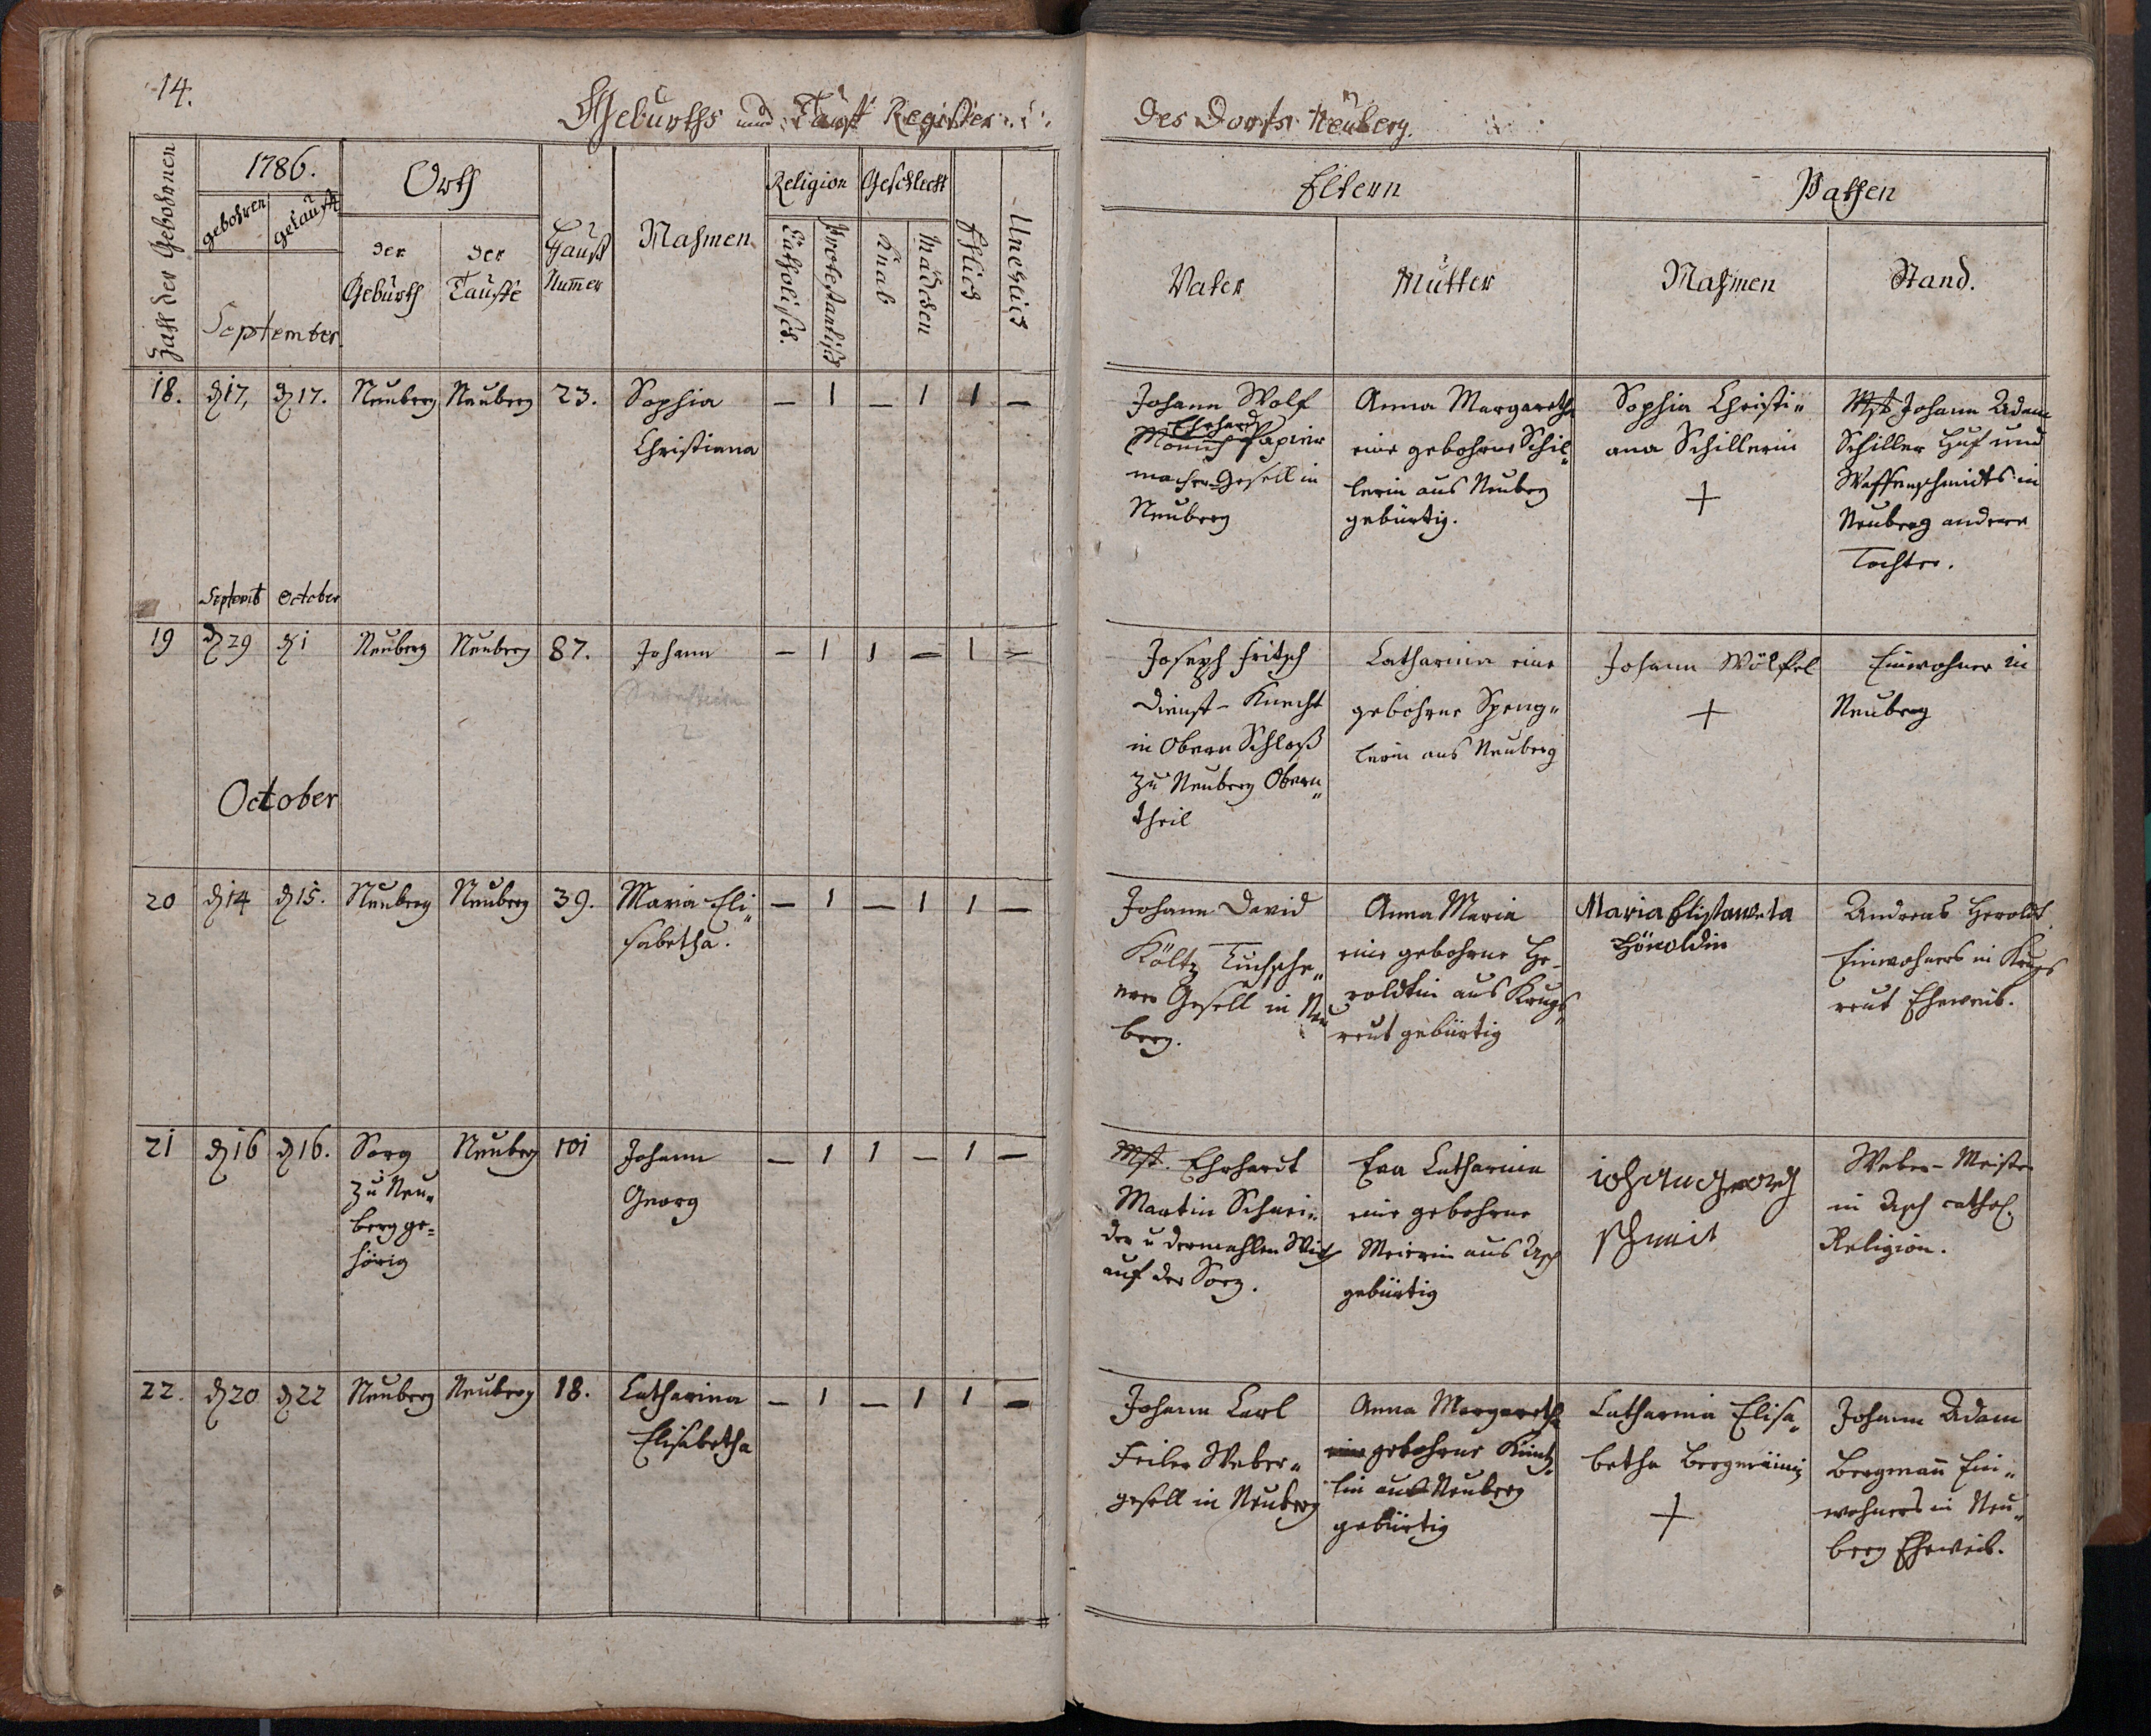 14.
Geburths und Tauff Register
des Dorfs Neuberg.
Zahl der Gebohrnen
1786.
gebohren
getaufft
September.
Orth
der Geburth
der Tauffe
Hauß Num̅er
Nahmen
Religion
Catholisch.
Protestantisch
Geschlecht
Knab
Mädchen
Ehlich
Unehlich
Eltern
Vater
Mutter
Pathen
Nahmen
Stand.
18.
d 17,
d 17.
Neuberg
Neuberg
23.
Sophia
Christiana
— 1 — 1 1 —
Johann Wolf
Ehrhard
Papier
macher-Gesell in
Neuberg
Anna Margaretha
eine gebohrne Schil„
lerin aus Neuberg
gebürtig.
Sophia Christi„
ana Schillerin
+
Mst Johann Adam
Schiller Huf und
Waffenschmidts in
Neuberg andere
Tochter.
Septemb October
19
d 29
d 1
Neuberg
Neuberg
87.
Johann
— 1 1 — 1 —
Joseph Fritsch
Dienst-Knecht
in Obern Schloß
zu Neuberg Obern„
theil
Catharina eine
gebohrne Speng„
lerin aus Neuberg
Johann Wölfel
+
Einwohner in
Neuberg
October
20
d 14
d 15.
Neuberg
Neuberg
39.
Maria Eli„
sabetha.
— 1 — 1 1 —
Johann David
Költz Tuchsche„
rer Gesell in Neu
berg.
Anna Maria
eine gebohrne He„
roldtin aus Krugs„
reut gebürtig
Maria
Höroldin
Andreas Heroldt
Einwohners in Krugs
reut Eheweib.
21
d 16
d 16.
Sorg
zu Neu„
berg ge„
hörig
Neuberg
101
Johann
Georg
— 1 1 — 1 —
Mst. Ehrhardt
Martin Schnei„
der u dermahlen Wirth
auf der Sorg.
Eva Catharina
eine gebohrne
Meierin aus Asch
gebürtig
iohan georg
schmit
Weber-Meister
in Asch cathol.
Religion.
22.
d 20
d 22
Neuberg
Neuberg
18.
Catharina
Elisabetha
— 1 — 1 1 —
Johann Carl
Feiler Weber„
gesell in Neuberg
Anna Margaretha
eine gebohrne Künz„
lin aus Neuberg
gebürtig
Catharina Elisa„
betha Bergmännin
+
Johann Adam
Bergman̅ Ein„
wohners in Neu„
berg Eheweib.